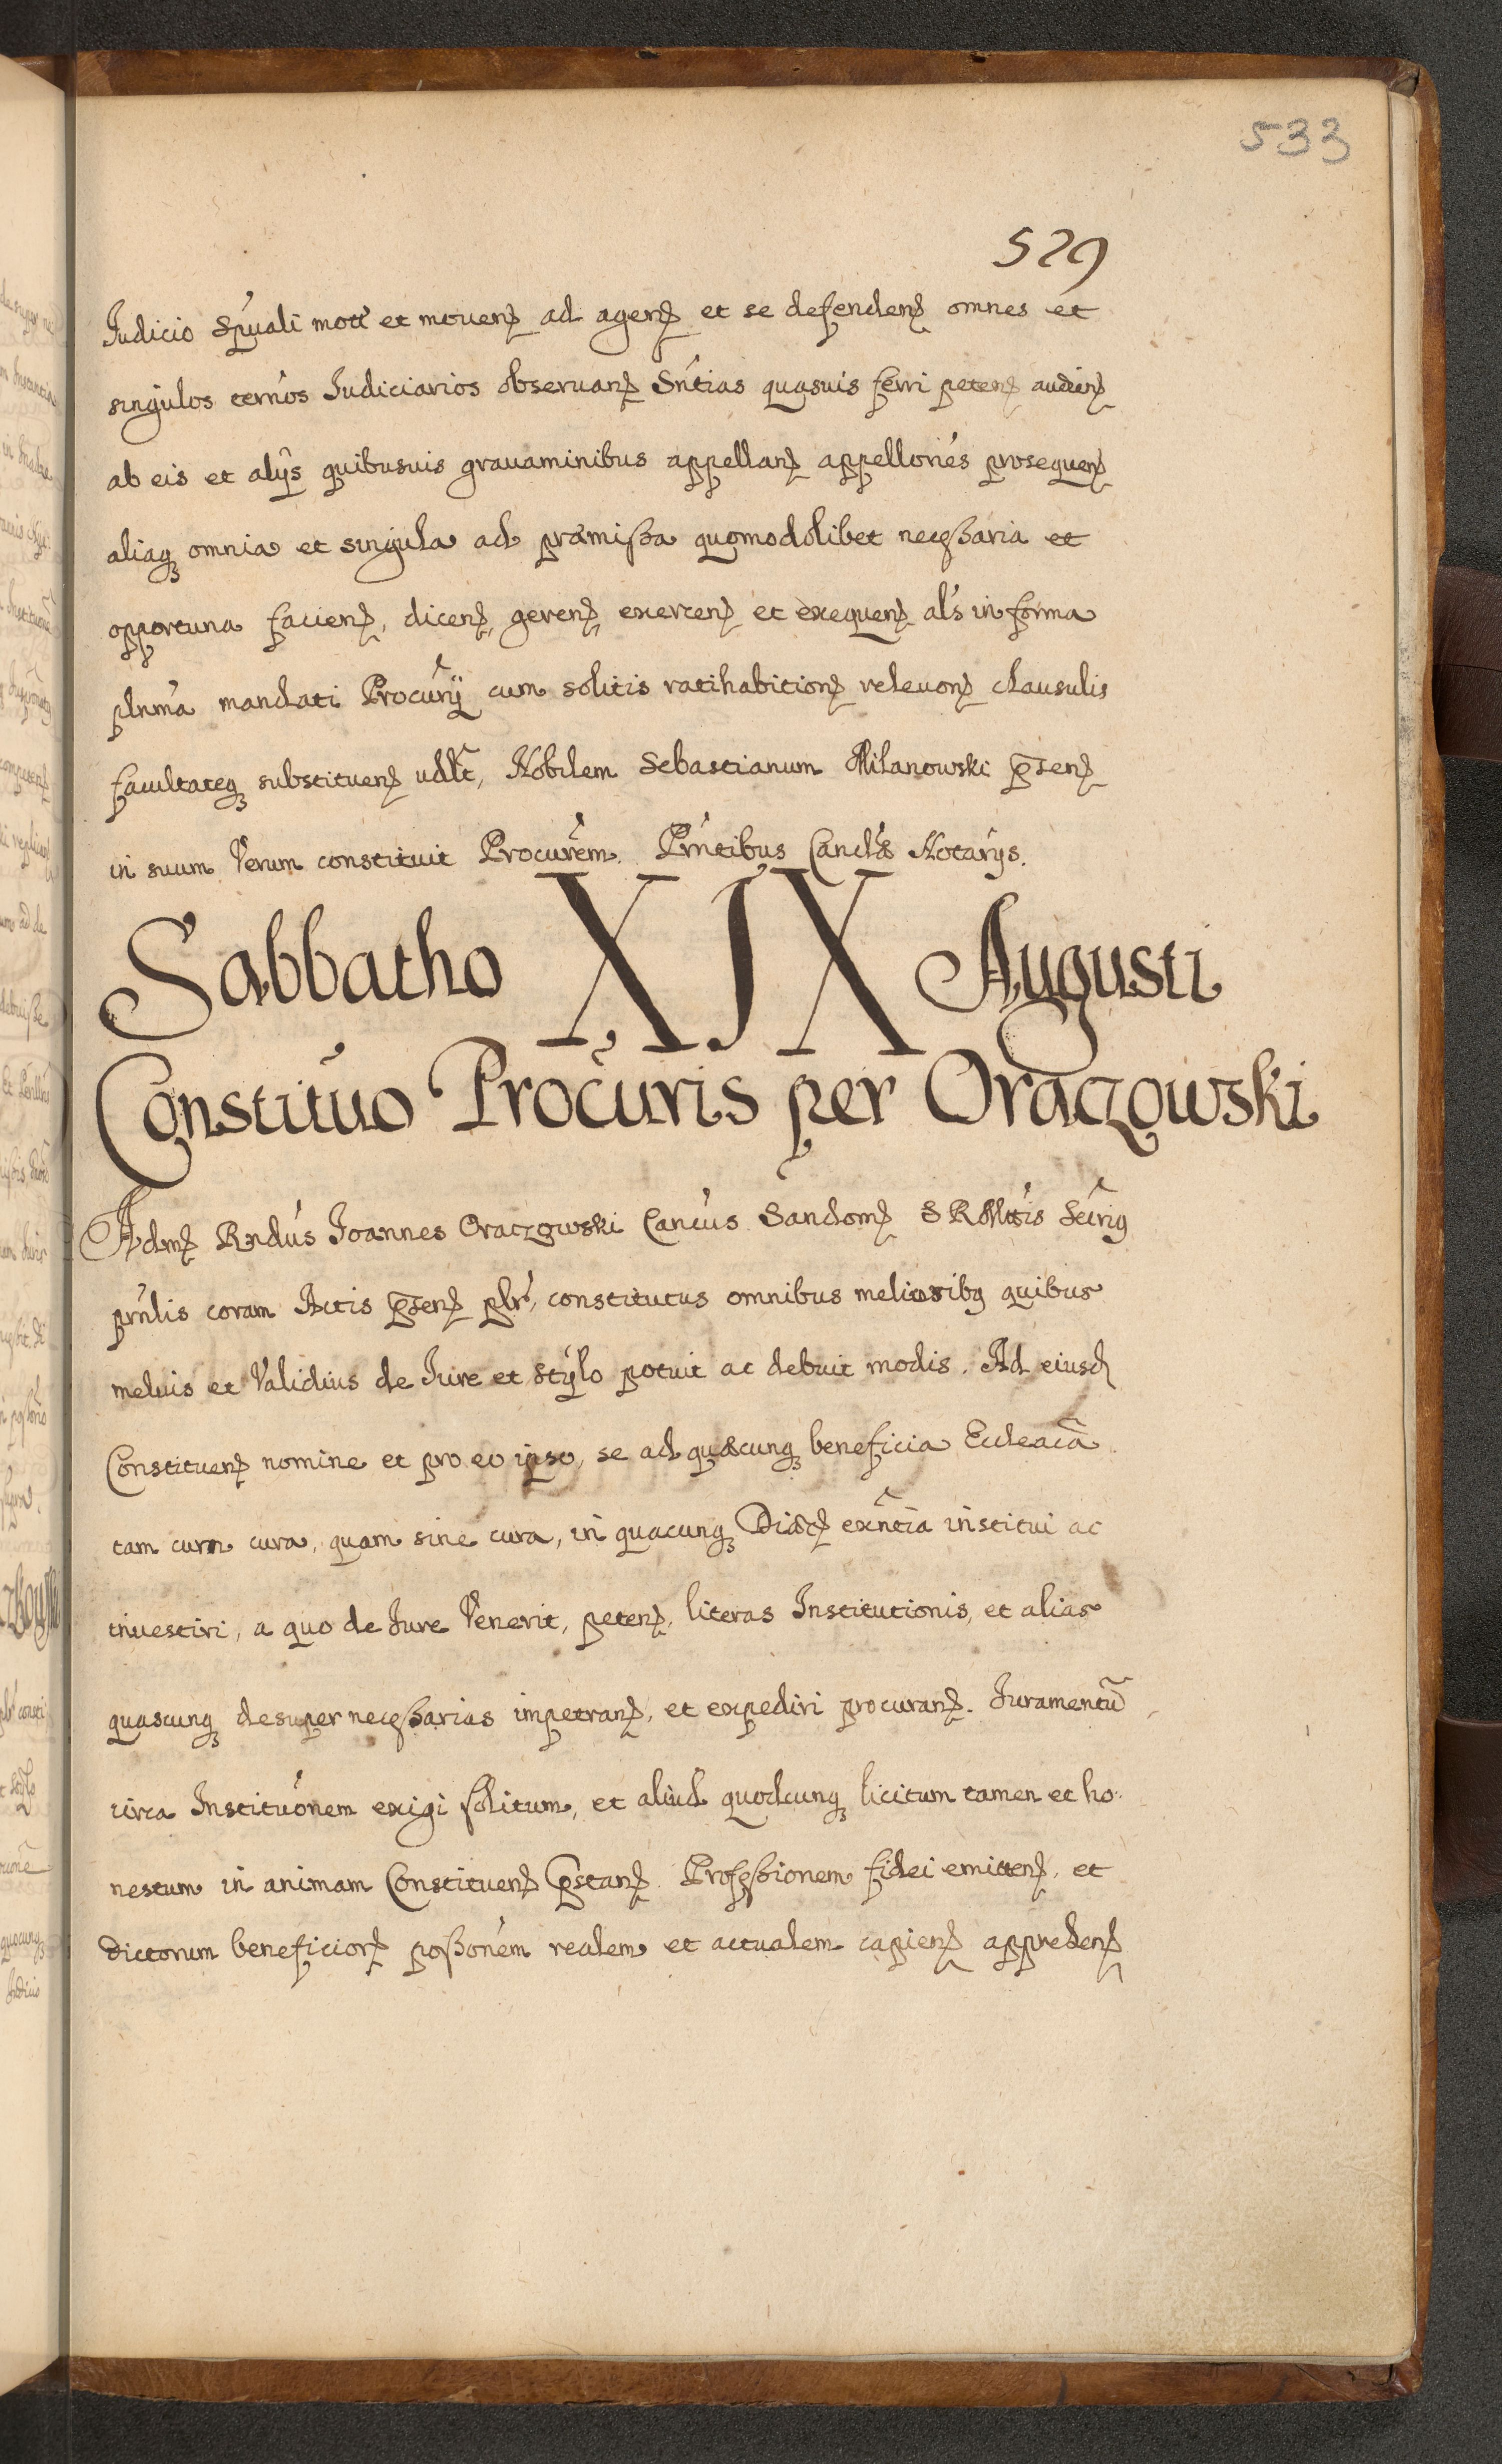 533
529
Judicio Spũali mott et mouenꝫ ad agenꝫ et se defendenꝫ omnes et
singulos ternós Judiciarios obseruanꝫ Sńtias quasuis ferri petenꝫ audienꝫ
ab eis et alijs quibusuis grauaminibus appellanꝫ appellonés prosequenꝫ
aliaqꝫ omnia et singula ad præmißa quomodolibet neceßaria et
opportuna facienꝫ, dicenꝫ, gerenꝫ, exercenꝫ et exequenꝫ als in forma
plnmá mandati Procurỹ cum solitis ratihabitionꝫ releuonꝫ clausulis
facultateqꝫ substituenꝫ vdlt, Nobilem Sebastianum Milanowski p̄senꝫ
in suum Verum constituit Procurém. Prńtibus Canclꝭ Notarijs.
Sabbatho XIX Augusti
Constitúo Procuris per Oraczowski
Admꝫ Rndús Joannes Oraczowski Canćus Sandomꝫ S R Mttis Secrius
prńlis coram Actis p̄senꝫ plr, constitutus omnibus melioribꝫ quibus
melius et Validius de Jure et stylo potuit ac debuit modis. Ad eiusd
Constituenꝫ nomine et pro eo ipso, se ad quæcunqꝫ beneficia Eccleacã
tam cum cura, quam sine cura, in quacunqꝫ Diæcꝫ exñtia institui ac
inuestiri, a quo de Jure Venerit, petenꝫ, literas Institutionis, et alias
quascunqꝫ desuper neceßarias impetranꝫ, et expediri procuranꝫ. Juramentũ
circa Institúonem exigi solitum, et aliud quodcunqꝫ licitum tamen et ho-
nestum in animam Constituenꝫ p̄stanꝫ. Profeßionem fidei emittenꝫ, et
dictorum beneficiorꝫ poßoném realem et actualem capienꝫ apprehenꝫ